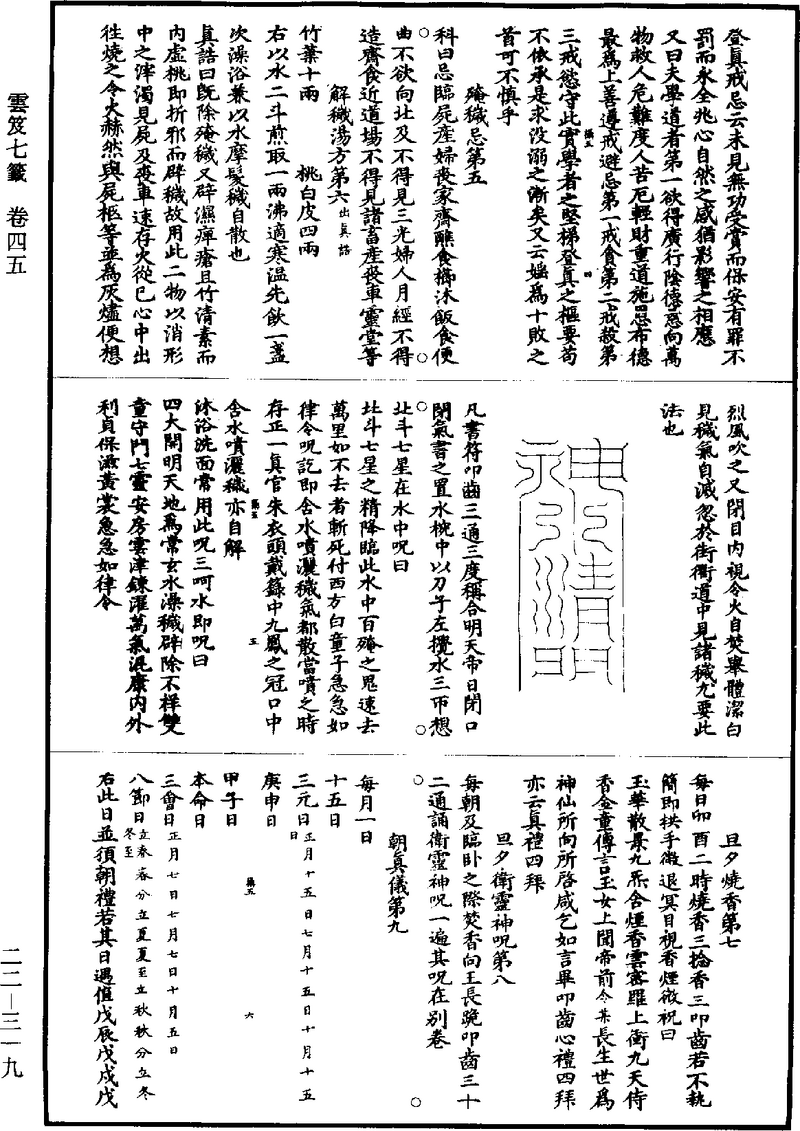 雲笈七籤 卷四五
登真戒忌云未見無功受賞而保安有罪不
罰而永全兆心自然之感猶影響之相應
又曰夫學道者第一欲得廣行陰德慈向萬
物救人危難度人苦厄輕財重道施恩布德
最為上善遵戒避忌第一戒貪第二戒殺第
三戒慾守此實學者之堅梯登真之樞要苟
不依承是求沒溺之漸矣又云婬為十敗之
首可不慎乎
殗穢忌第五
科曰忌臨屍產婦喪家齋醮食櫛沐飯食便
曲不欲向北及不得見三光婦人月經不得
造齋食近道場不得見諸畜產喪車靈堂等
解穢湯方第六出真誥
竹葉十兩 桃白皮四兩
右以水二斗煎取一兩沸適寒溫先飲一盞
次澡浴兼以水摩髮穢自散也
真誥曰既除殗穢又辟濕痺瘡且竹清素而
內虛桃即折邪而辟穢故用此二物以消形
中之滓濁見屍及喪車速存火從己心中出
往燒之令火赫然與屍柩等並為灰燼便想
烈風吹之又閉目內視令火自焚舉體潔白
見穢氣自滅忽於街衢道中見諸穢尤要此
法也
凡書符叩齒三通三度稱合明天帝日閉口
閉氣書之置水椀中以刀子左攪水三帀想
北斗七星在水中呪曰
北斗七星之精降臨此水中百殗之鬼速去
萬里如不去者斬死付西方白童子急急如
律令呪訖即含水噴灑穢氣都散當噴之時
存正一真官朱衣頭戴籙中九鳳之冠口中
含水噴灑穢亦自解
沐浴洗面常用此呪三呵水即呪曰
四大開明天地為常玄水澡穢辟除不祥雙
童守門七靈安房雲津鍊濯萬氣混康內外
利貞保滋黃裳急急如律令
旦夕燒香第七
每日卯酉二時燒香三捻香三叩齒若不執
簡即拱手微退冥目視香煙微祝曰
玉華散景九炁含煙香雲密羅上衝九天侍
香金童傳言玉女上聞帝前令某長生世為
神仙所向所啓咸乞如言畢叩齒心禮四拜
亦云真禮四拜
旦夕衛靈神呪第八
每朝及臨卧之際焚香向王長跪叩齒三十
二通誦衛靈神呪一遍其呪在別卷
朝真儀第九
每月一日
十五日
三元日正月十五日七月十五日十月十五日
庚申日
甲子日
本命日
三會日正月七日七月七日十月五日
八節日立春春分立夏夏至立秋秋分立冬冬至
右此日並須朝禮若其日遇值戊辰戊戌戊
二二—三一九